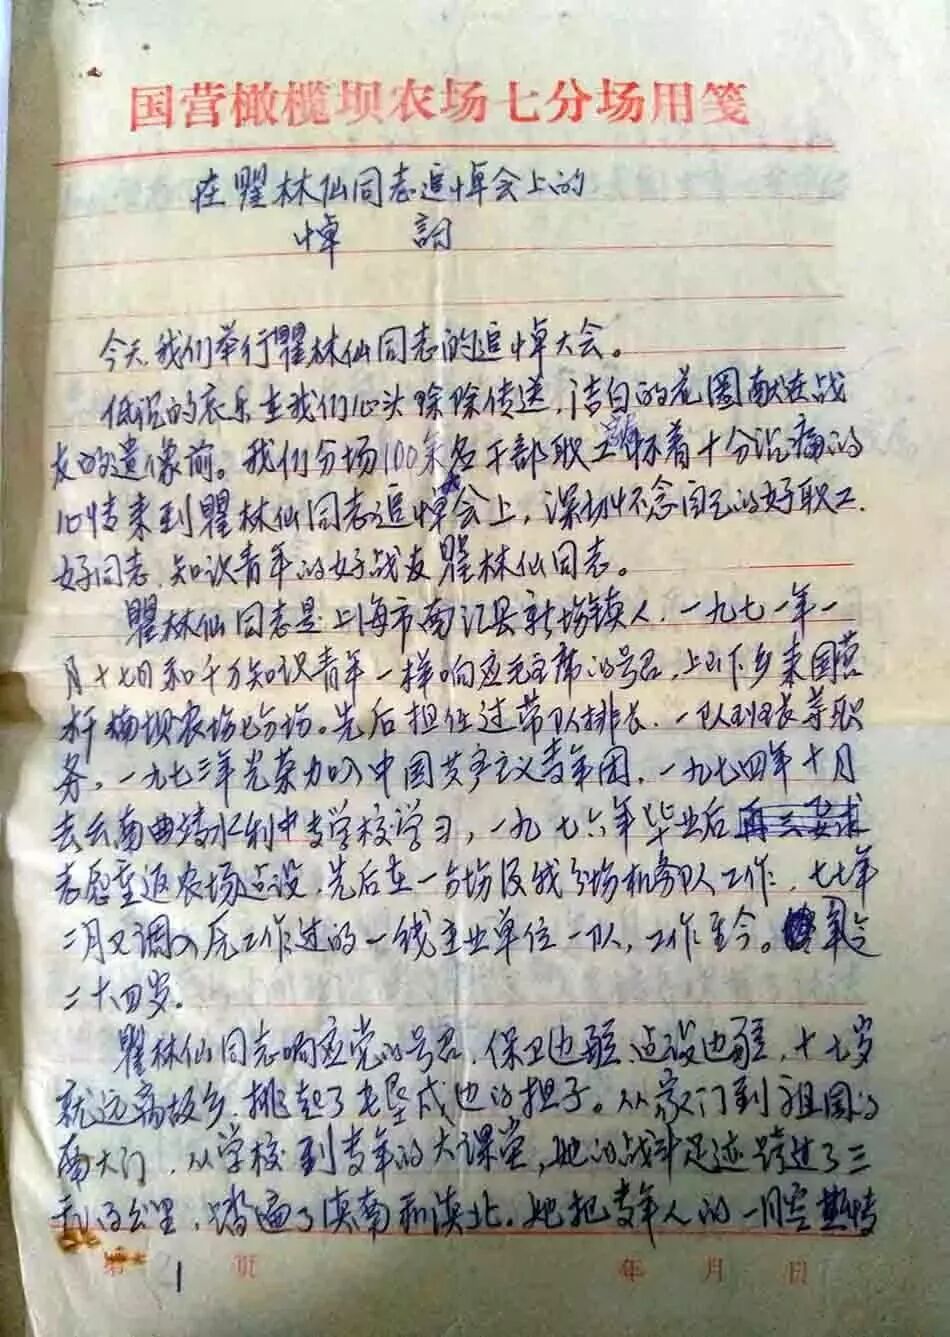 国营橄榄坝农场七分场用笺
在瞿林仙同志追悼会上的
悼 詞
今天我们举行瞿林仙同志的追悼大会。
低沉的哀乐在我们心头徐徐传送，洁白的花圈献在战
友的遗像前。我们分场100余名干部职工怀着十分沉痛的
心情来到瞿林仙同志追悼会上，深切怀念自己的好职工，
好同志，知识青年的好战友瞿林仙同志。
瞿林仙同志是上海市南汇县新场镇人，一九七一年一
月十七日和千万知识青年一样响应毛主席的号召，上山下乡来国营
橄榄坝农场七分场。先后担任过带队排长，一队班长等职
务，一九七三年光荣加入中国共产主义青年团，一九七四年十月
去云南曲靖水利中专学校学习，一九七六年毕业后再三要求
志愿重返农场边设，先后在一分场及我分场机务队工作，七七年
二月又调入原工作过的一线主业单位一队，工作至今。享年
二十四岁。
瞿林仙同志响应党的号召，保卫边疆，边设边疆，十七岁
就远离故乡，挑起了屯垦戍边的担子。从家门到祖国的
南大门，从学校到青年的大课堂，她的战斗足迹跨过了三
千的公里，踏遍了滇南和滇北。她把青年人的一片
第 1 页 年 月 日